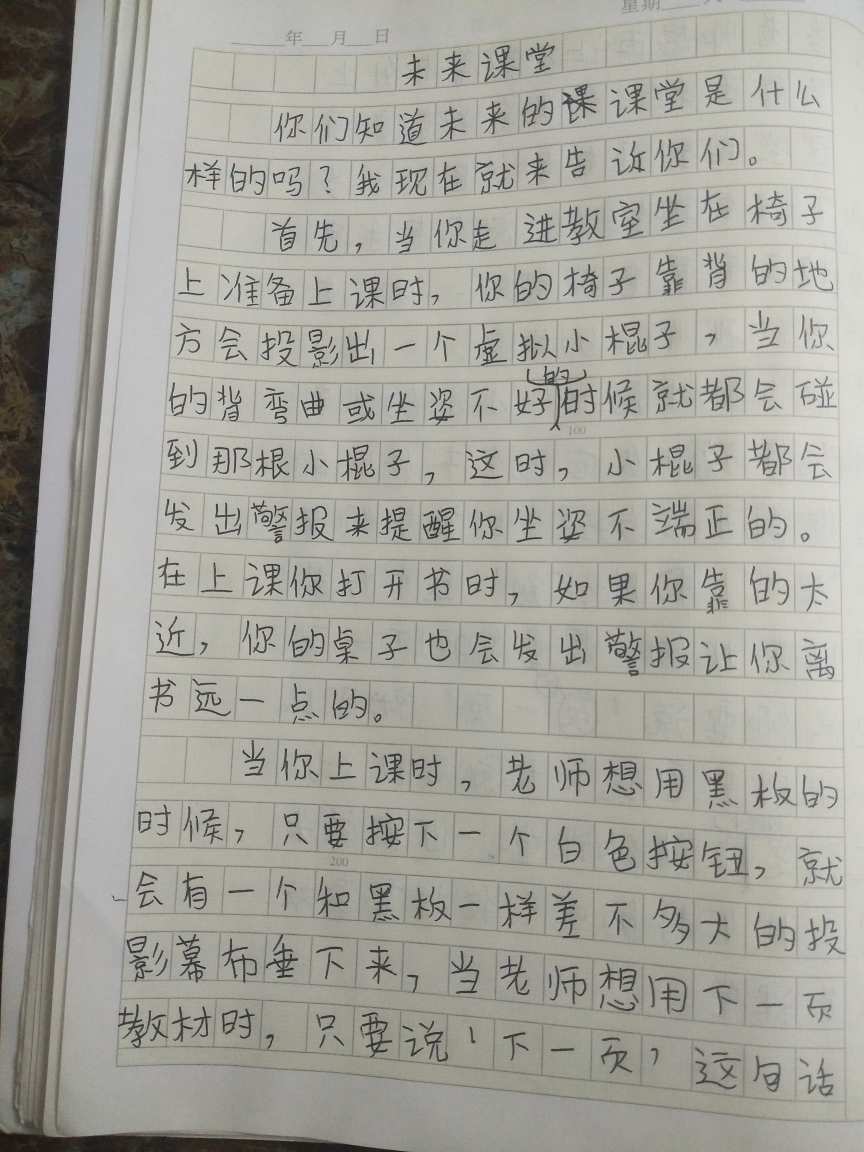 星期
年 月 日
未来课堂
你们知道未来的课课堂是什么
样的吗？我现在就来告诉你们。
首先，当你走进教室坐在椅子
上准备上课时，你的椅子靠背的地
方会投影出一个虚拟小棍子，当你
的背弯曲或坐姿不好的时候就都会碰
100
到那根小棍子，这时，小棍子都会
发出警报来提醒你坐姿不端正的。
在上课你打开书时，如果你靠的太
近，你的桌子也会发出警报让你离
书远一点的。
当你上课时，老师想用黑板的
时候，只要按下一个白色按钮，就
200
会有一个和黑板一样差不多大的投
影幕布垂下来，当老师想用下一页
教材时，只要说'下一页'这句话